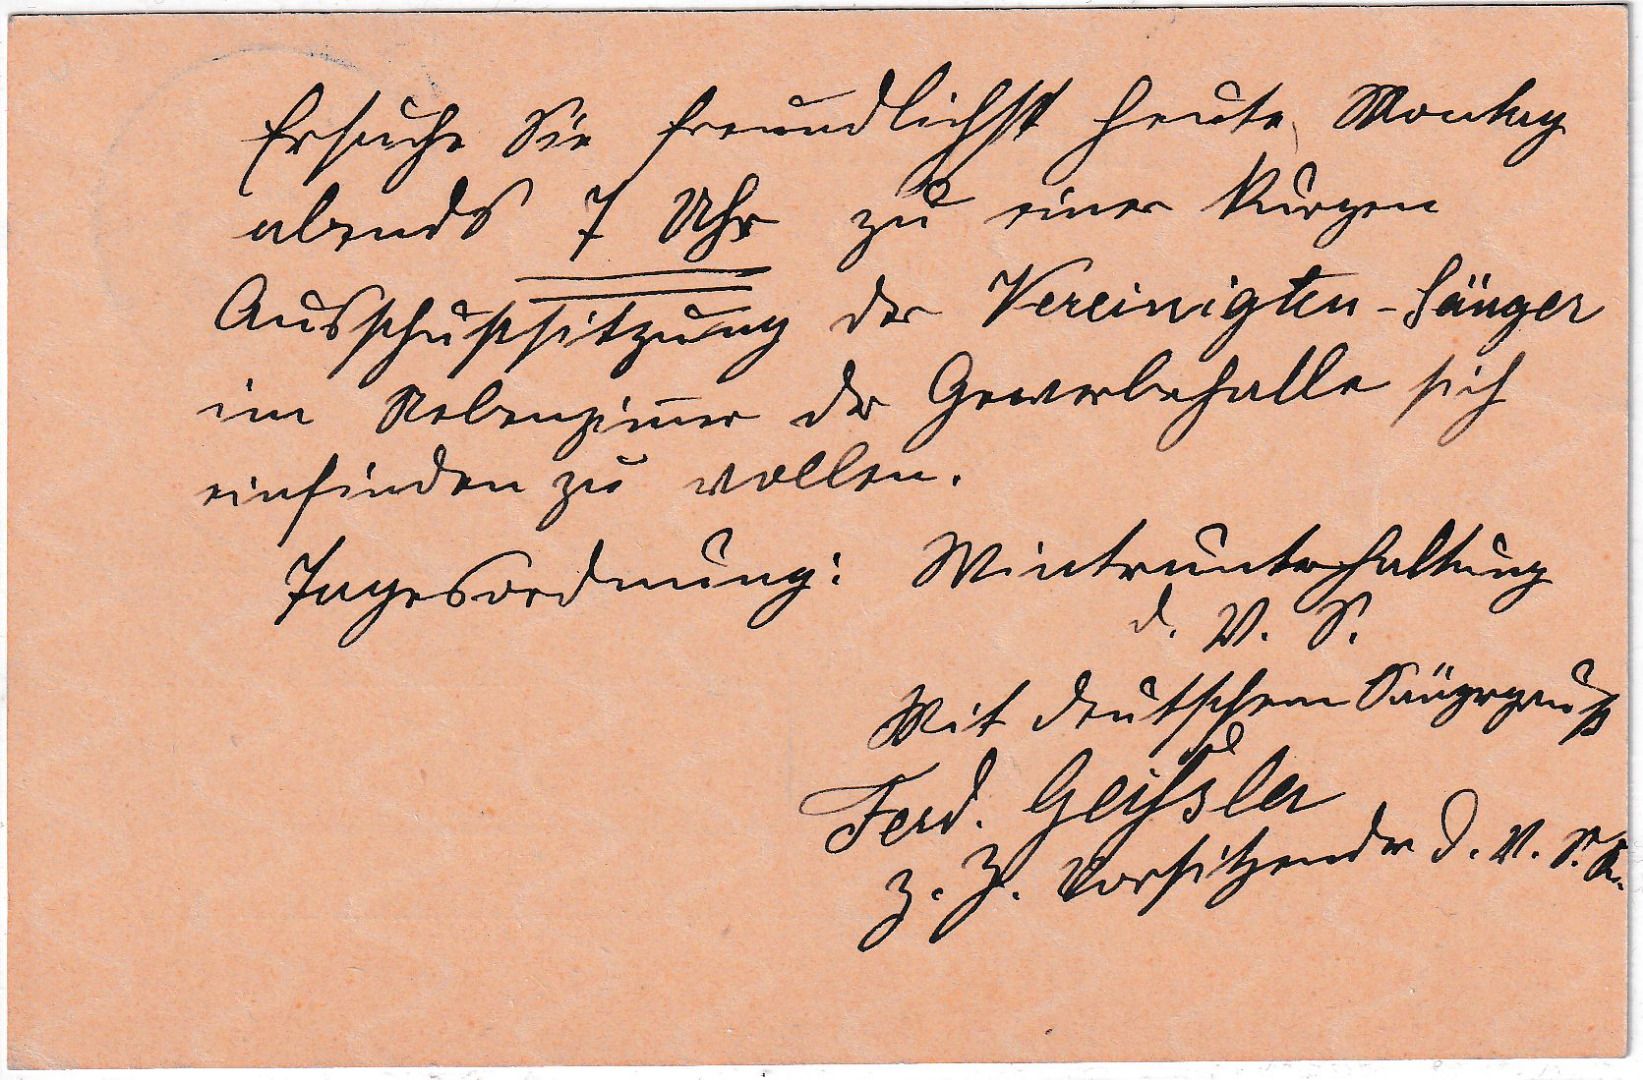 Ersuche Sie freundlichst heute, Montag
abends 7 Uhr zu einer kurzen
Ausschußsitzung der Vereinigten-Sänger
im Nebenzimmer der Gewerbehalle sich
einfinden zu wollen.
Tagesordnung: Winterunterhaltung
d. V. S.
Mit deutschem Sängergruß
Ferd. Geißler
z. Z. Vorsitzender d. V. S. K.